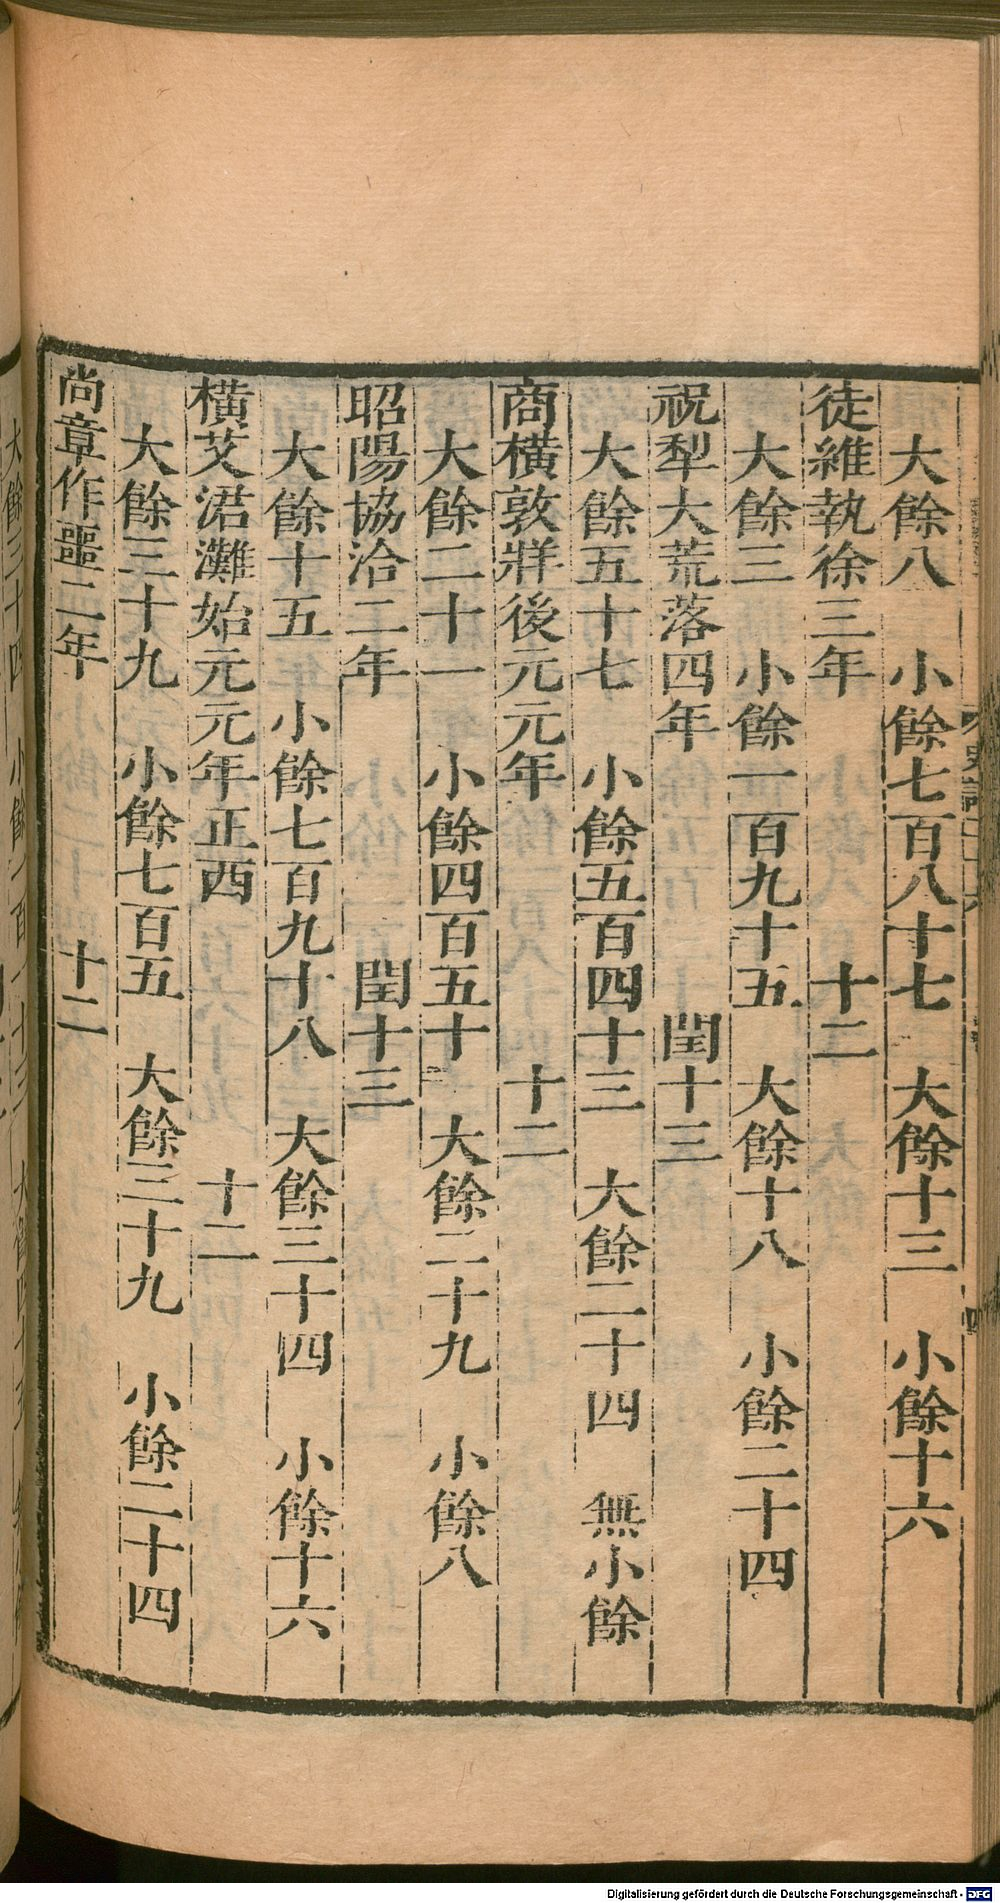 大餘八　小餘七百八十七　大餘十三　小餘十六
徒維執徐三年　十二
大餘三　小餘一百九十五　大餘十八　小餘二十四
祝犁大荒落四年　閏十三
大餘五十七　小餘五百四十三　大餘二十四　無小餘
商橫敦牂後元元年　十二
大餘二十一　小餘四百五十　大餘二十九　小餘八
昭陽協洽二年　閏十三
大餘十五　小餘七百九十八　大餘三十四　小餘十六
橫艾涒灘始元元年正西　十二
大餘三十九　小餘七百五　大餘三十九　小餘二十四
尚章作噩二年　十二
Digitalisierung gefördert durch die Deutsche Forschungsgemeinschaft - DFG